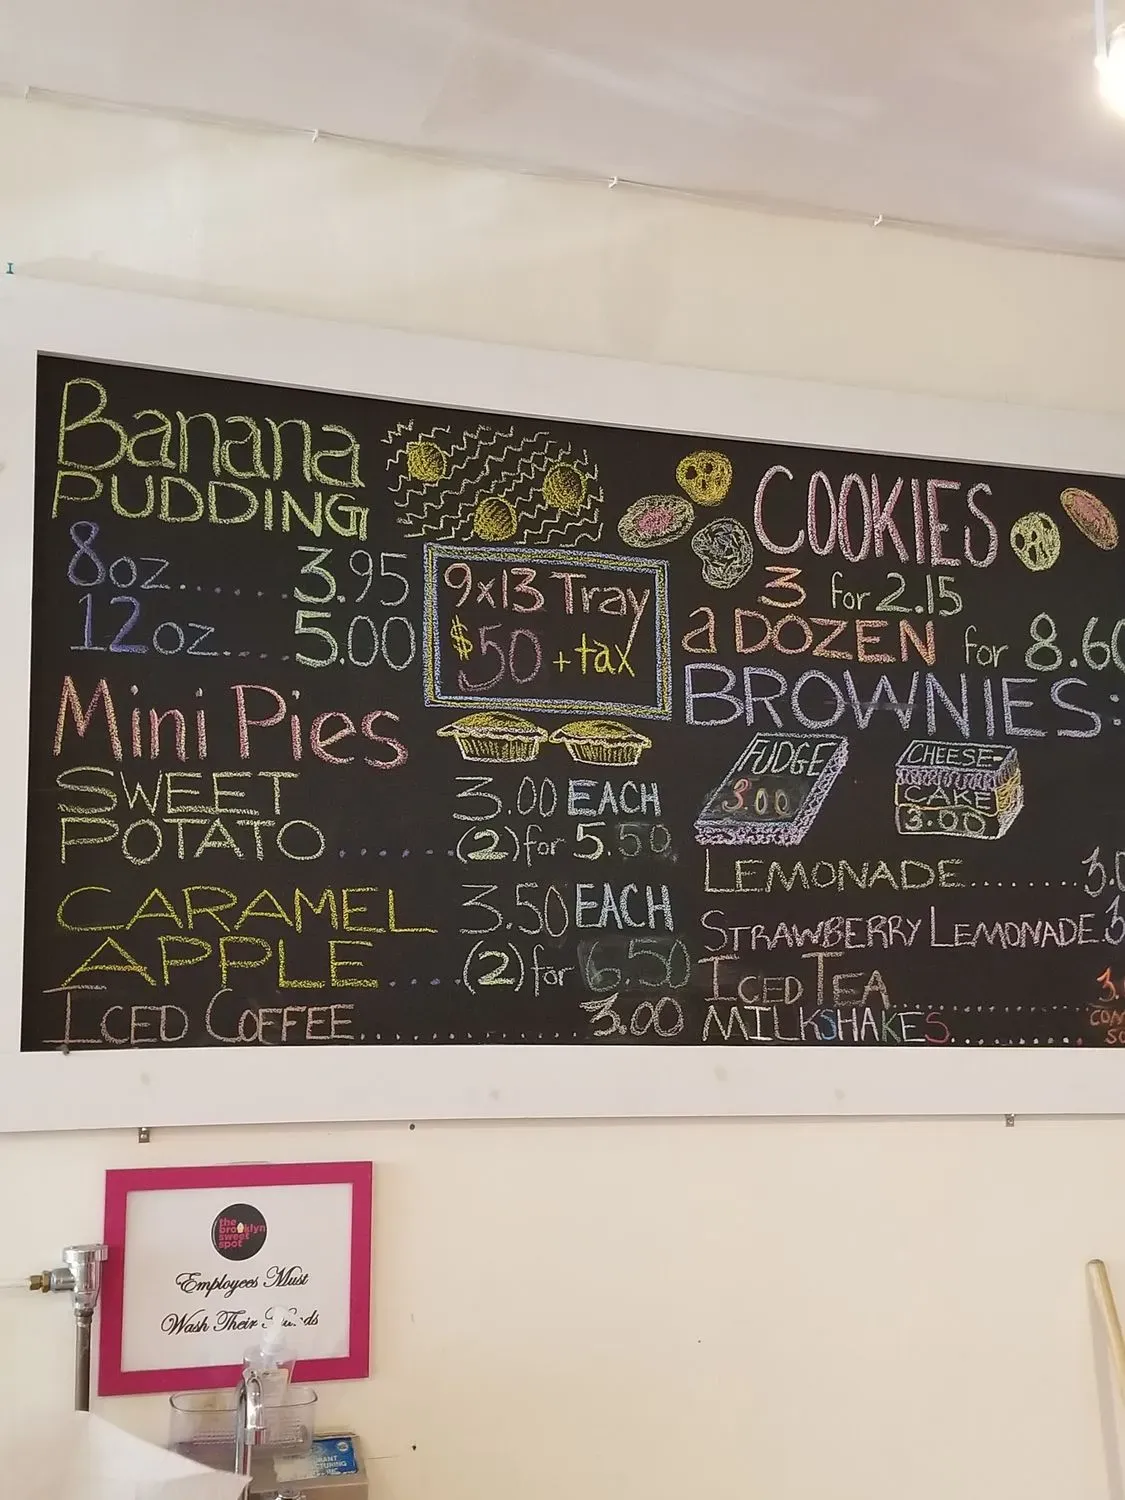 Banana
PUDDING
8oz.......3.95
12oz.....5.00
9x13 Tray
$50 + tax
Mini Pies
SWEET
POTATO......
3.00 EACH
(2) for 5.50
CARAMEL
APPLE.....
3.50 EACH
(2) for 6.50
ICED COFFEE..............3.00
COOKIES
3 for 2.15
a DOZEN for 8.60
BROWNIES:
FUDGE
3.00
CHEESE-
CAKE
3.00
LEMONADE........3.0
STRAWBERRY LEMONADE.3
ICED TEA..............3.
MILKSHAKES.........
the
brooklyn
sweet
spot
Employees Must
Wash Their Hands